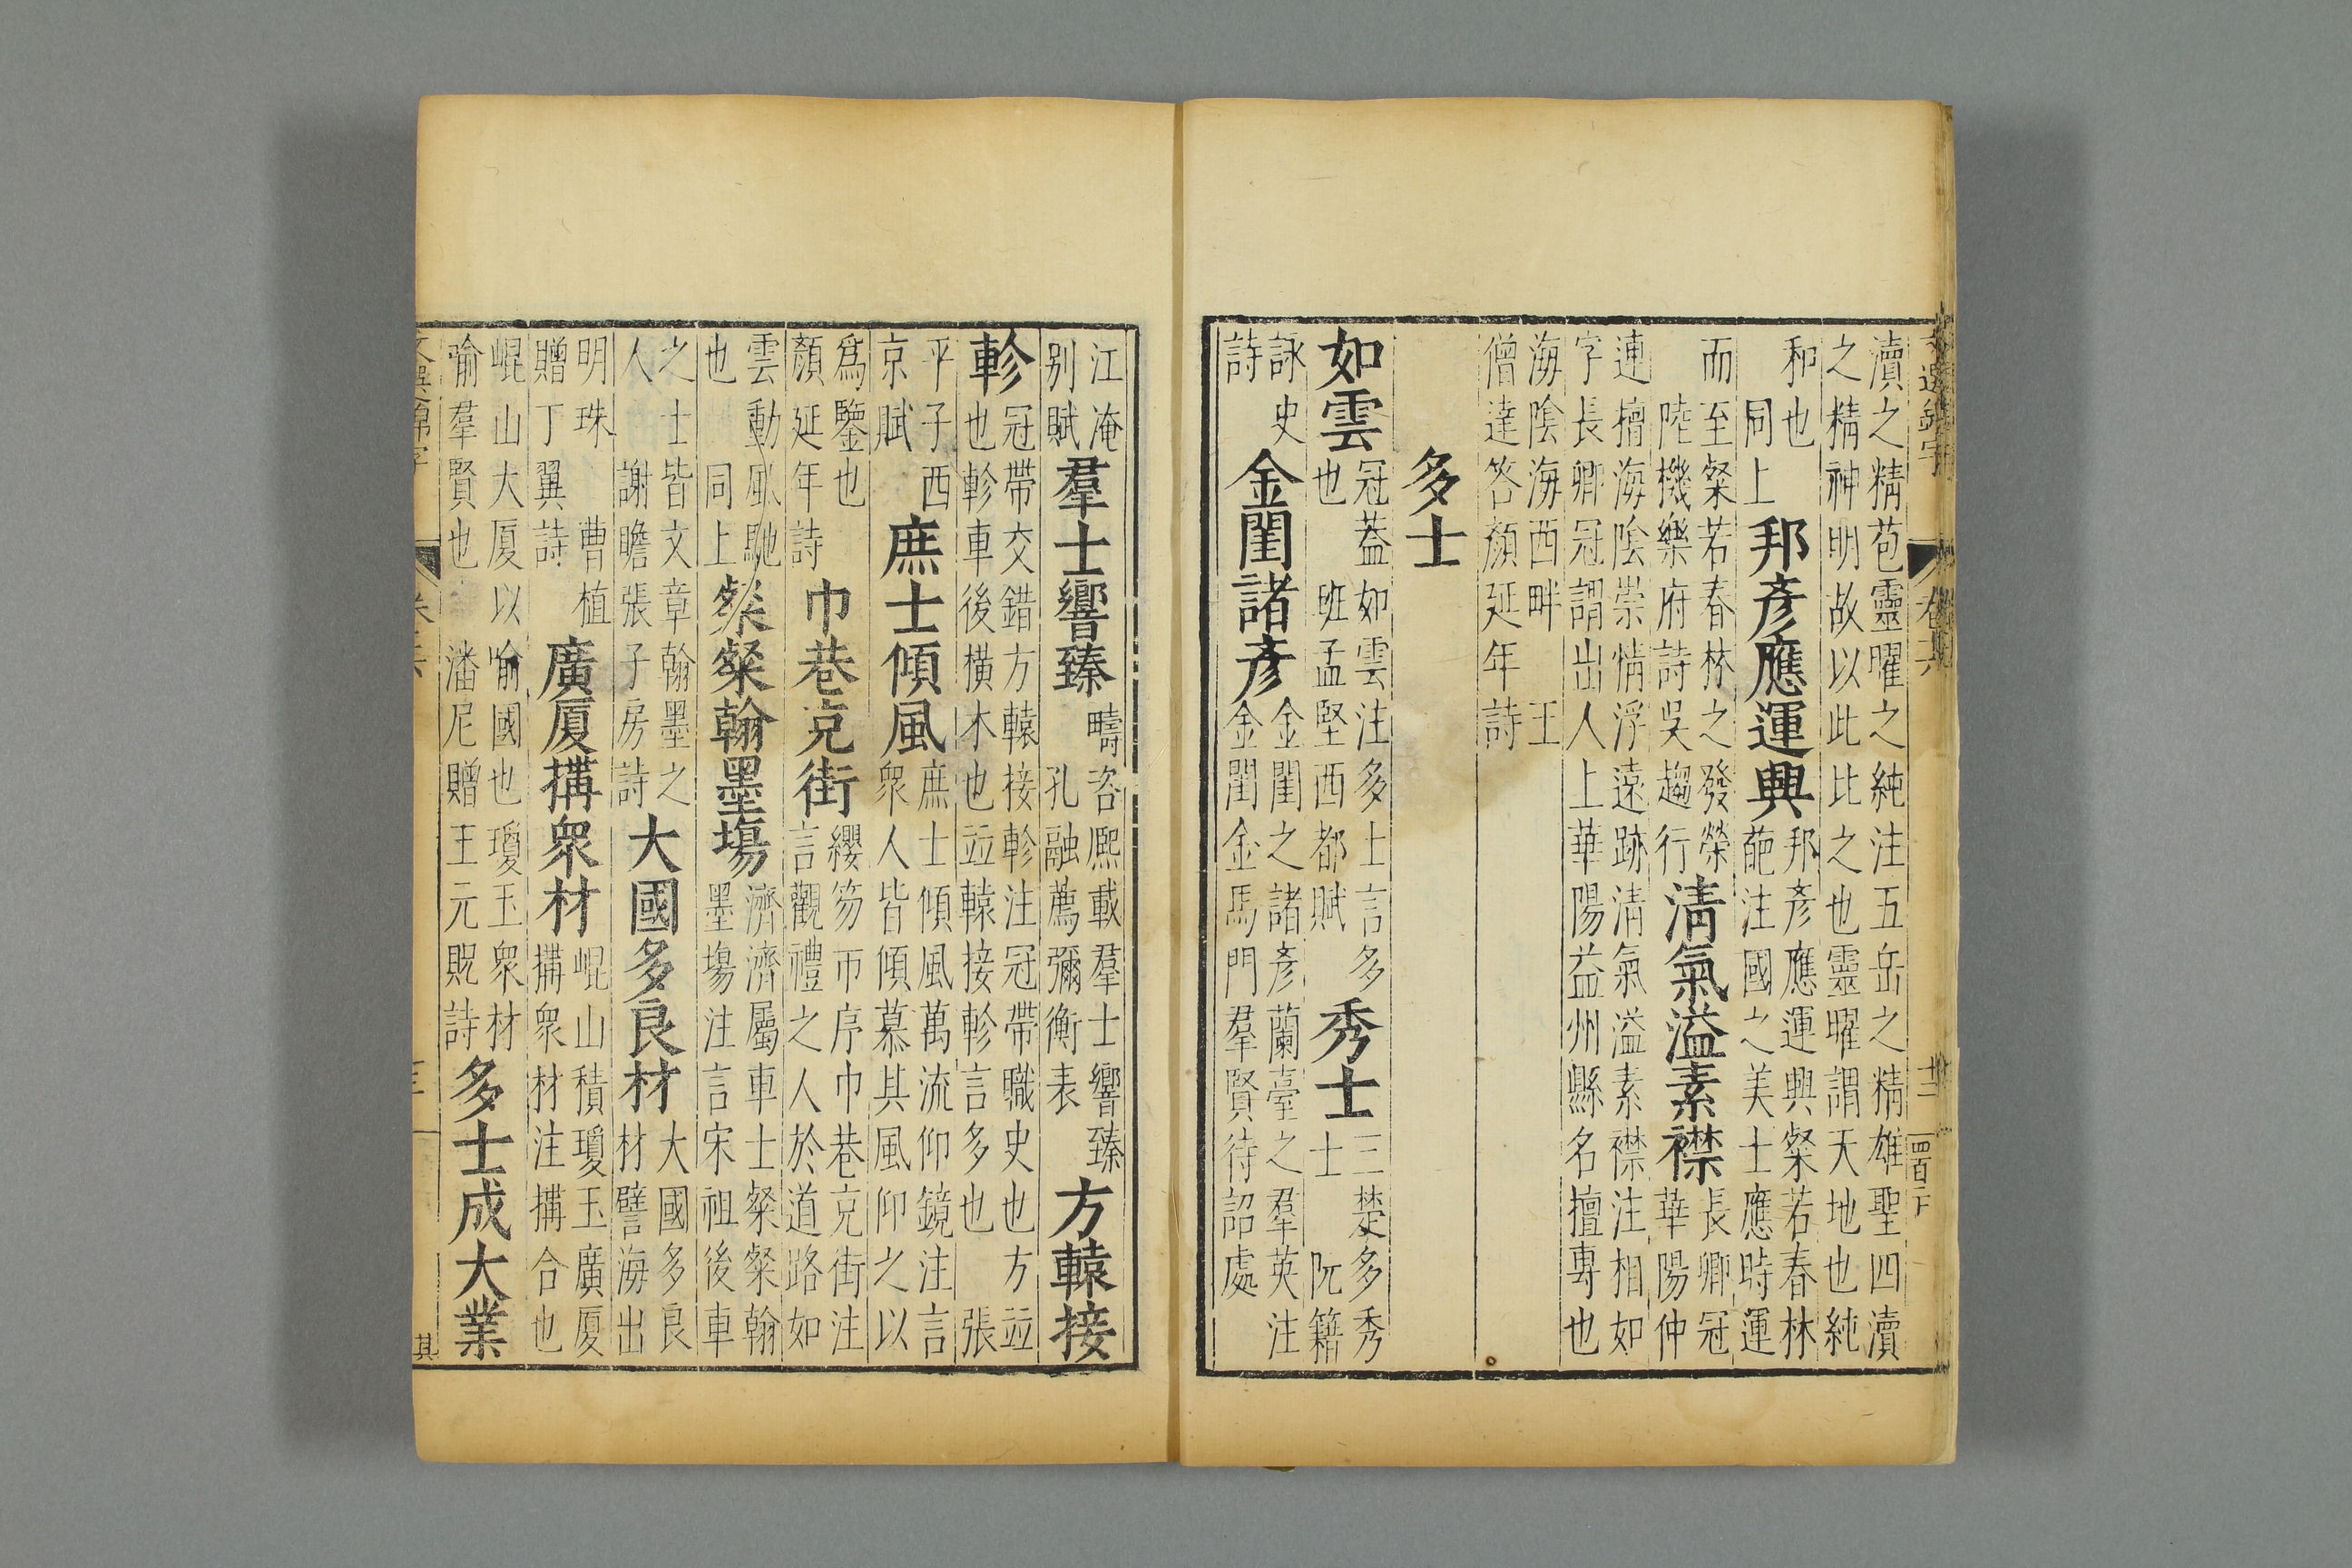 瀆之精苞靈曜之純注五岳之精雄聖四瀆
之精神明故以此比之也靈曜謂天地也純
和也
同上
邦彥應運興
邦彥應運興粲若春林
葩注國之美士應時運
而至粲若春林之發榮
陸機樂府詩吳趨行
清氣溢素襟
長卿冠
華陽仲
連擅海陰崇情浮遠跡清氣溢素襟注相如
字長卿冠謂出人上華陽益州縣名擅專也
海陰海西畔 王
僧達答顏延年詩
多士
如雲
冠葢如雲注多士言多
也 班孟堅西都賦
秀士
三楚多秀
士 阮籍
詠史
詩
金閨諸彥
金閨之諸彥蘭臺之羣英注
金閨金馬門羣賢待詔處
江淹
別賦
羣士響臻
疇咨熙載羣士響臻
孔融薦彌衡表
方轅接
軫
冠帶交錯方轅接軫注冠帶職史也方並
也軫車後橫木也並轅接軫言多也 張
平子西
京賦
庶士傾風
庶士傾風萬流仰鏡注言
衆人皆傾慕其風仰之以
爲鑒也
顏延年詩
巾巷克街
纓笏帀序巾巷克街注
言觀禮之人於道路如
雲動風馳
也 同上
粲粲翰墨塲
濟濟屬車士粲粲翰
墨塲注言宋祖後車
之士皆文章翰墨之
人 謝瞻張子房詩
大國多良材
大國多良
材譬海出
明珠 曹植
贈丁翼詩
廣厦搆衆材
崐山積瓊玉廣厦
搆衆材注搆合也
崐山大厦以喻國也瓊玉衆材
喻羣賢也 潘尼贈王元貺詩
多士成大業
卷六
四百二十
其